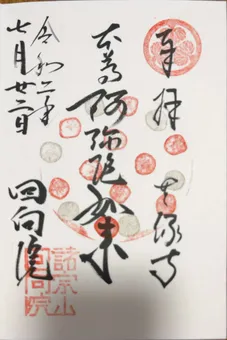 奉拝
无縁寺
本尊
阿弥陀如来
令和二年
七月廿二日
回向院
諸宗山
回向院